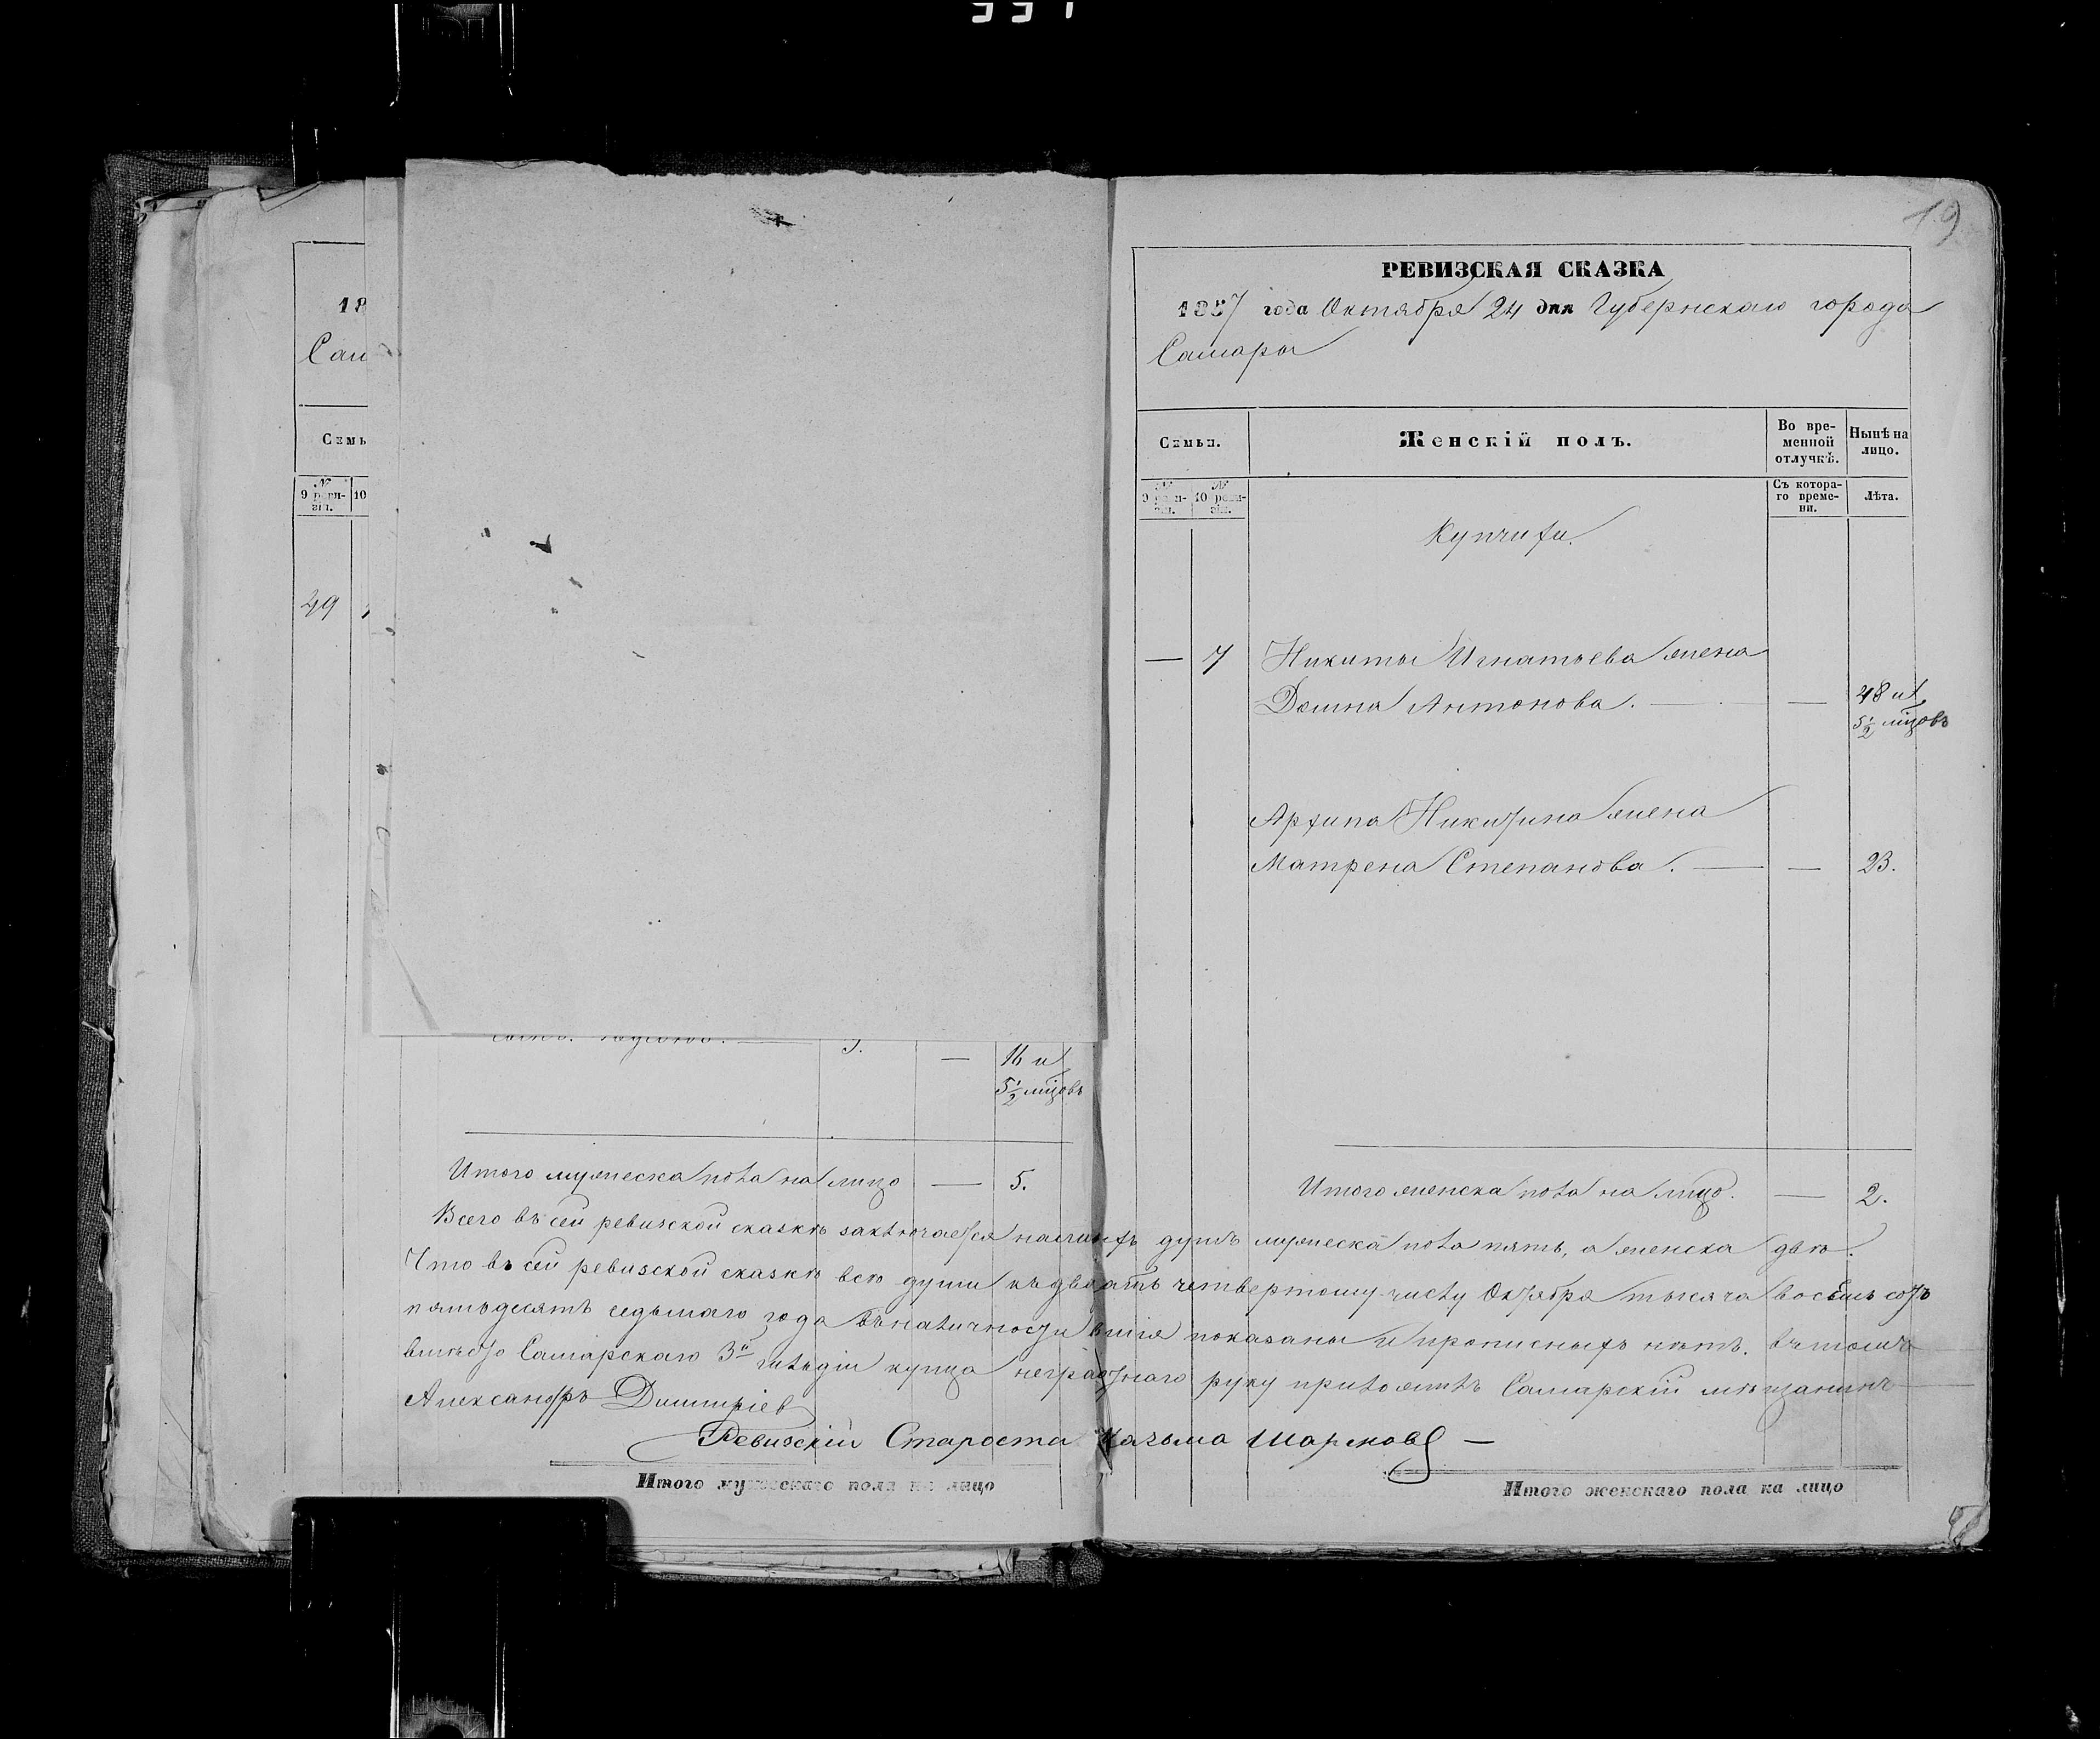 19
18
Сам
Семь
№
9 реви-
зіи.
10
49
16 и
5½ мцовъ
Итого мужеска пола на лицо — 5.
РЕВИЗСКАЯ СКАЗКА
1857 года Октября 24 дня Губернскаго города
Самары
Семьи.
Женскій полъ.
Во вре-
менной
отлучкѣ.
Нынѣ на
лицо.
№
9 реви-
зіи.
№
10 реви-
зіи.
Съ котора-
го време-
ни.
Лѣта.
Купчихи.
— 7 Никиты Игнатьева жена
Домна Антонова. — — 48 и
5½ мцовъ
Архипа Никитина жена
Матрена Степанова. — — 23.
Итого женска пола на лицо. — 2.
Всего въ сей ревизской сказкѣ заключается наличныхъ душъ мужеска пола пять, а женска двѣ.
Что въ сей ревизской сказкѣ всѣ души къ двадцать четвертому числу Октября тысяча восемь сотъ
пятьдесятъ седьмаго года въ наличности вмия показаны и прописныхъ нѣтъ. въ томъ
вмѣсто Самарскаго 3й гильдіи купца неграмотнаго руку приложилъ Самарскій мѣщанинъ
Александръ Димитріев
Ревизскій Староста Казьма Шарлов —
Итого мужескаго пола на лицо
Итого женскаго пола на лицо